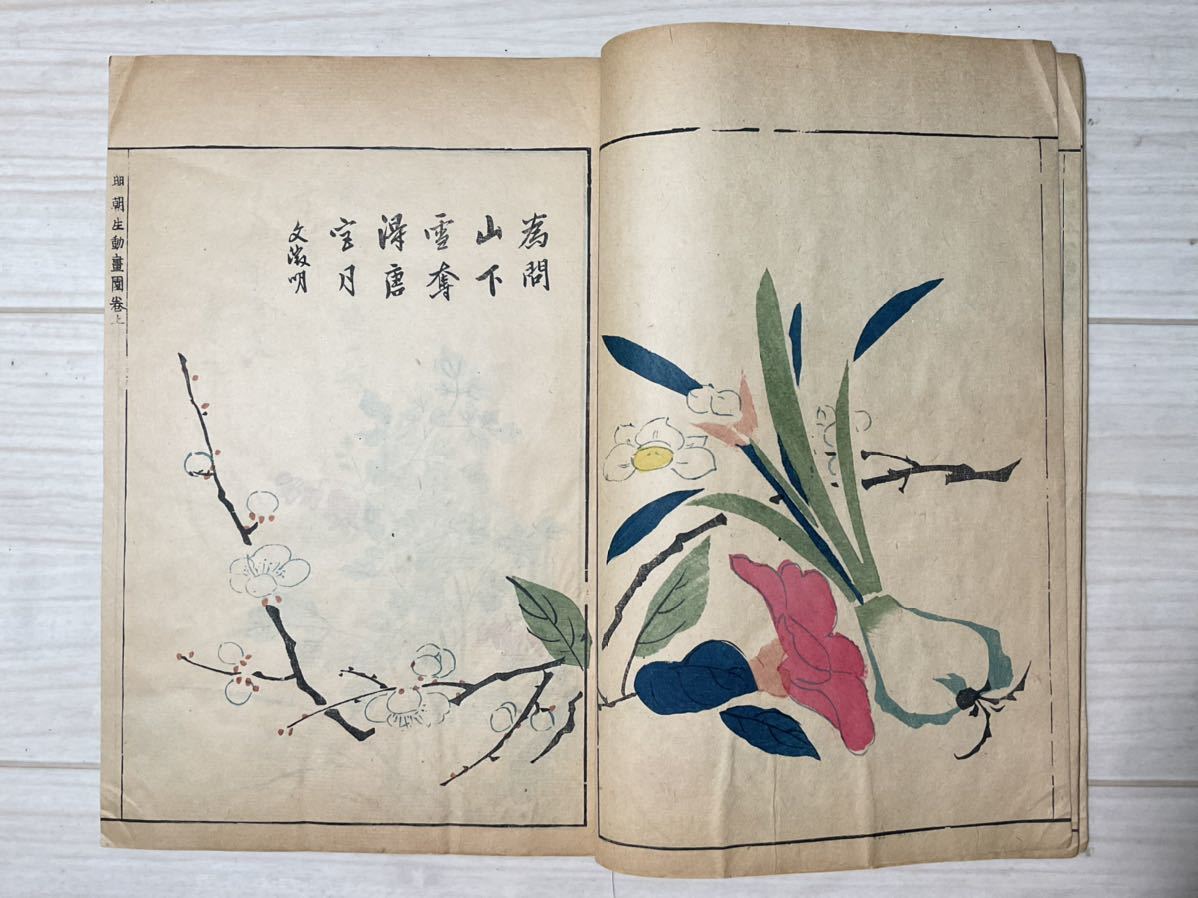 為問
山下
雪奪
得唐
宮月
文徵明
明朝生動畫園卷上